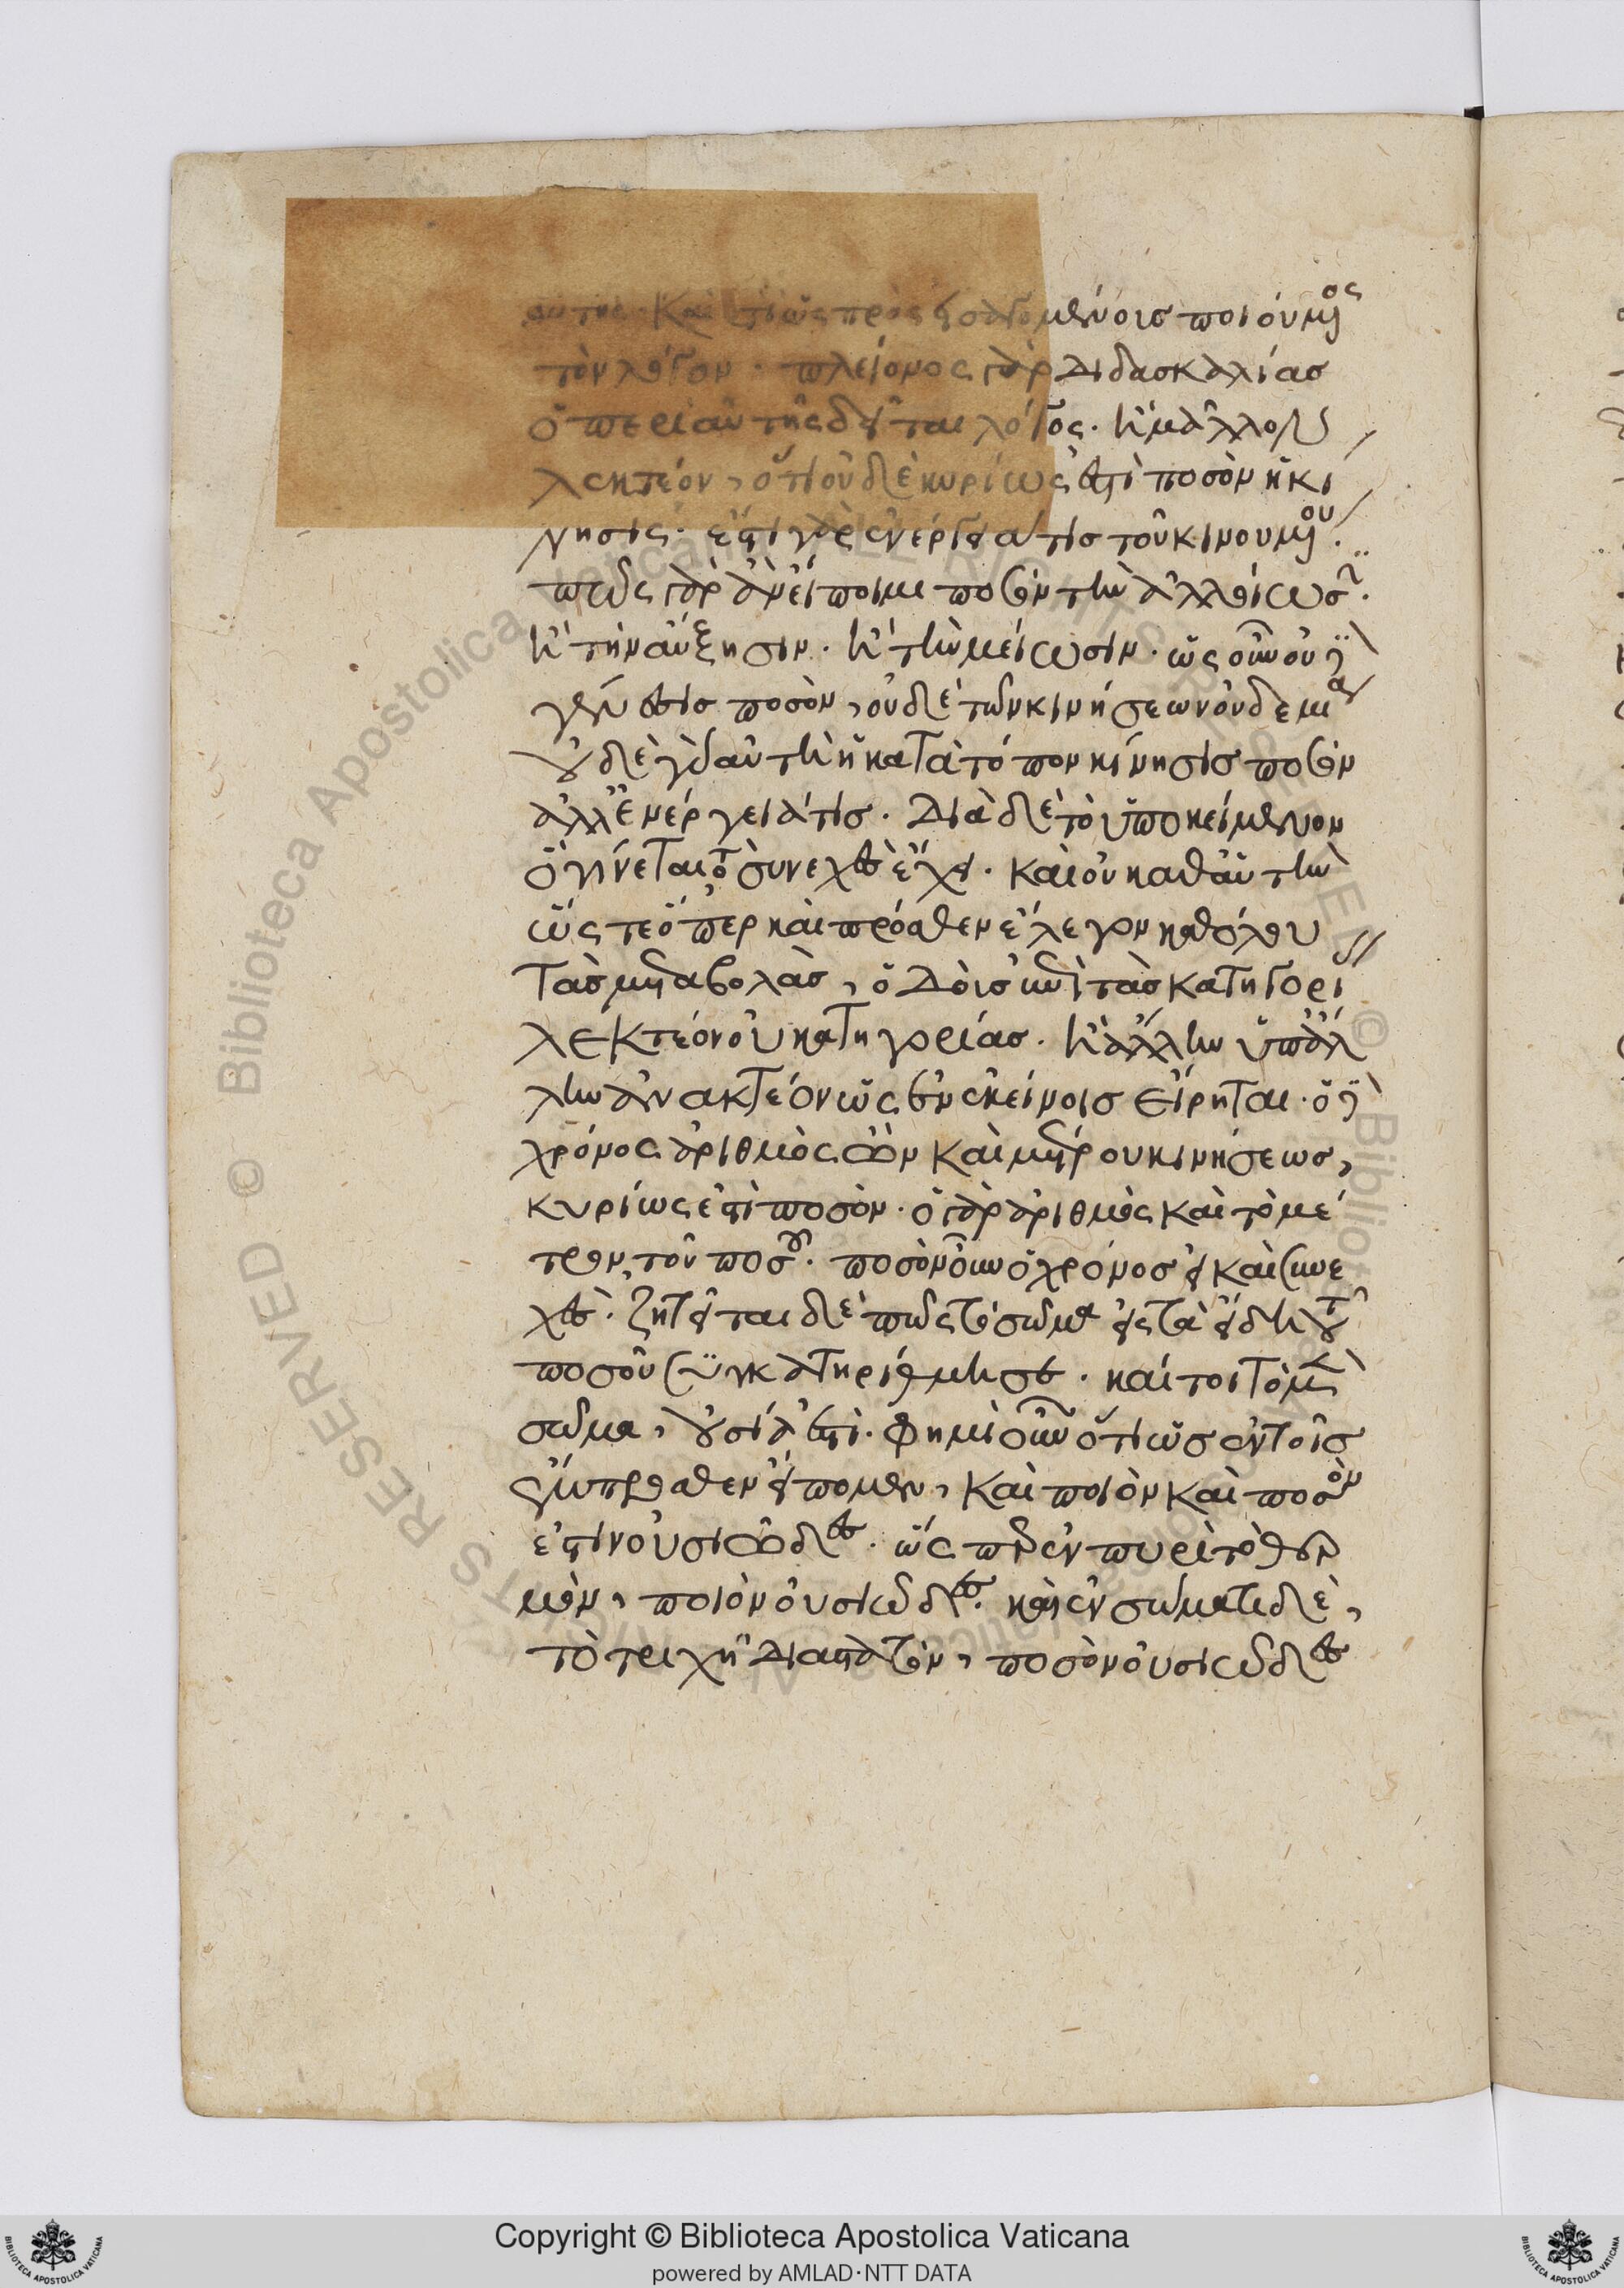 αὐτῆς. καὶ ὅτι ὡς πρὸς εἰσαγομένους ποιούμενος
τὸν λόγον. πλείονος γὰρ διδασκαλίας
ὁ περὶ αὐτῆς δεῖται λόγος. ἢ μᾶλλον
λεκτέον, ὅτι οὐδὲ κυρίως ἐστὶ ποσὸν ἡ κί
νησις. ἔστι γὰρ ἐνέργειά τις τοῦ κινουμένου.
πῶς γὰρ ἂν εἴποιμι ποσὸν τὴν ἀλλοίωσιν.
ἢ τὴν αὔξησιν. ἢ τὴν μείωσιν. ὡς οὖν οὐχ
γένεσις ποσὸν, οὐδὲ τῶν κινήσεων οὐδεμία
οὐδὲ γὰρ αὐτὴ ἡ κατὰ τόπον κίνησις ποσὸν
ἀλλ' ἐνέργειά τις. διὰ δὲ τὸ ὑποκείμενον
ὃ γίνεται τὸ συνεχὲς ἔχει. καὶ οὐ καθ' αὑτὴν
ὥστε ὅπερ καὶ πρόσθεν ἔλεγον καθόλου
τὰς μεταβολὰς, ὁδοὺς ἐπὶ τὰς κατηγορί
λεκτέον οὐ κατηγορίας. ἢ ἄλλην ὑπ' ἄλ
λην ἀνακτέον ὡς ἐν ἐκείνοις εἴρηται. ὁ
χρόνος ἀριθμὸς ὢν καὶ μέτρον κινήσεως,
κυρίως ἐστὶ ποσὸν. ὁ γὰρ ἀριθμὸς καὶ τὸ μέ
τρον, τοῦ ποσοῦ. ποσὸν οὖν ὁ χρόνος εἰ καὶ συνε
χὲς. ζητεῖται δὲ πῶς τὸ σῶμα εἰς τὰ εἴδη τοῦ
ποσοῦ συγκατηρίθμησε. καίτοι τὸ μὲν
σῶμα, οὐσία ἐστὶ. φημὶ οὖν ὅτι ὡς ἐν τοῖς
ἔμπροσθεν εἴπομεν, καὶ ποιὸν καὶ ποσὸν
ἐστιν οὐσιῶδες. ὥσπερ ἐν πυρὶ τὸ θερ
μὸν, ποιὸν οὐσιῶδες. καὶ ἐν σώματι δὲ,
τὸ τριχῇ διαστατὸν, ποσὸν οὐσιῶδες
Copyright © Biblioteca Apostolica Vaticana
powered by AMLAD·NTT DATA